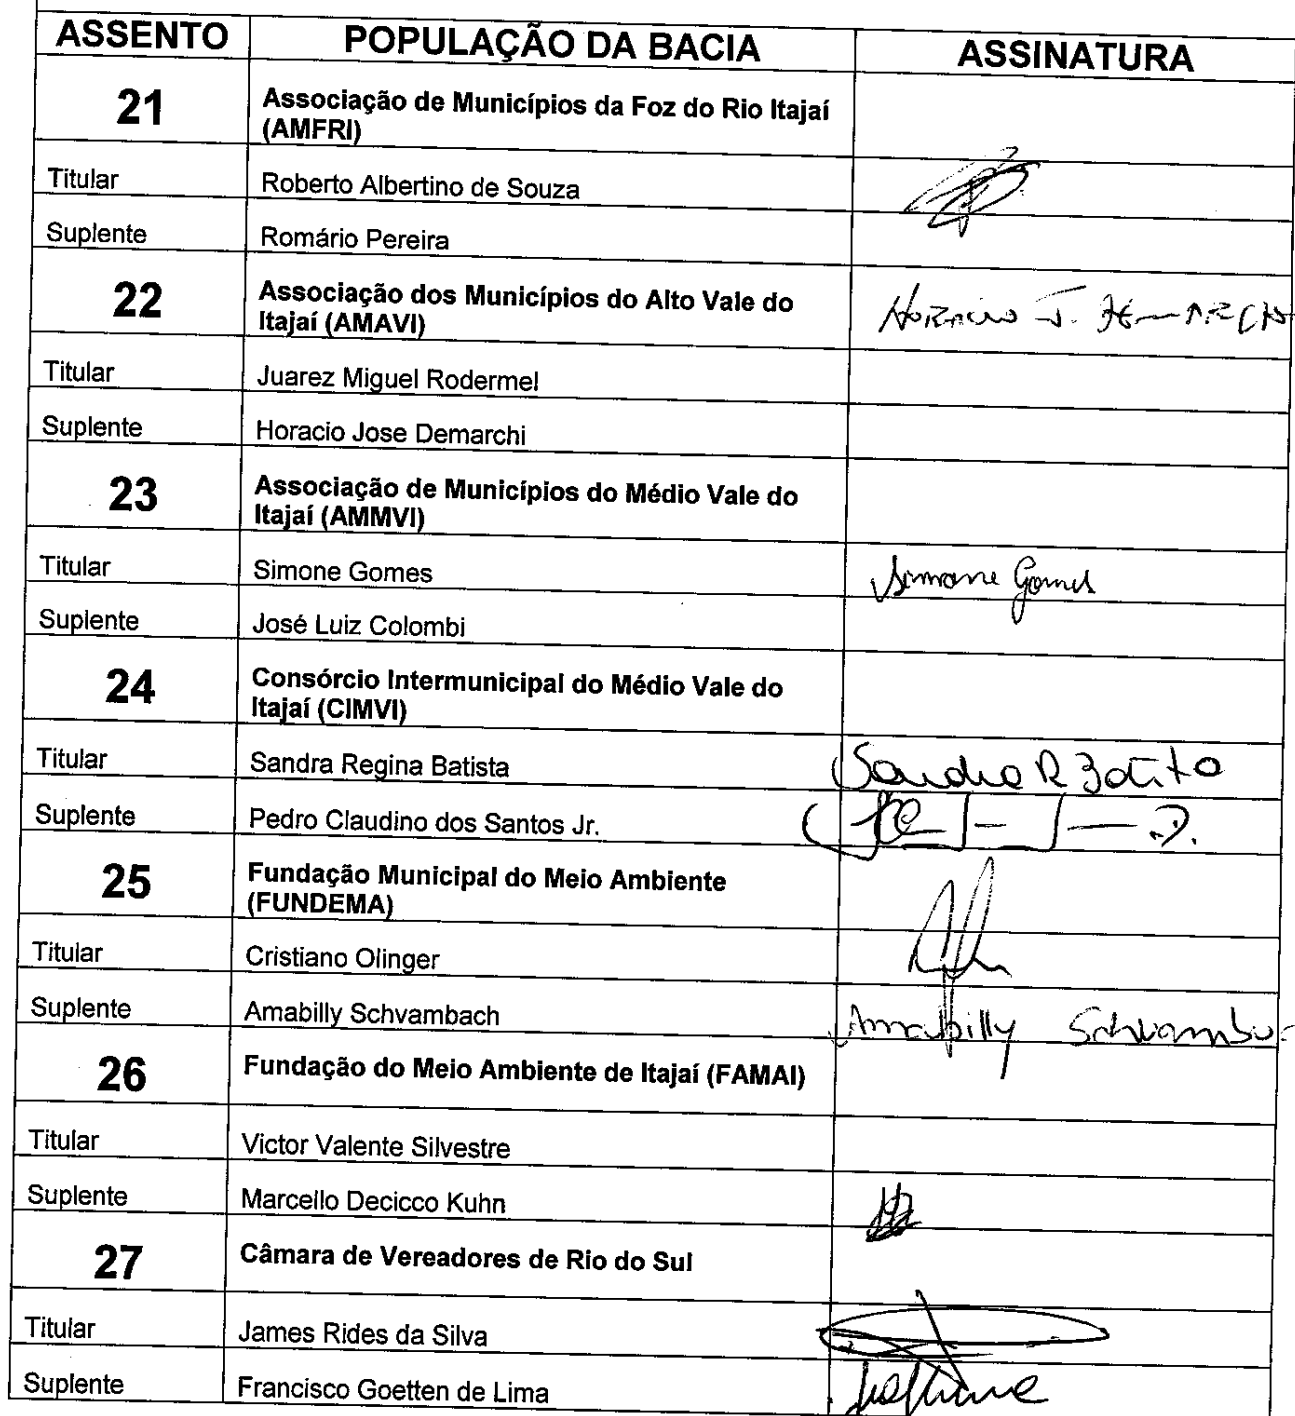 ASSENTO POPULAÇÃO DA BACIA ASSINATURA
21 Associação de Municípios da Foz do Rio Itajaí
(AMFRI)
Titular Roberto Albertino de Souza
Suplente Romário Pereira
22 Associação dos Municípios do Alto Vale do
Itajaí (AMAVI)
Horacio J.
Titular Juarez Miguel Rodermel
Suplente Horacio Jose Demarchi
23 Associação de Municípios do Médio Vale do
Itajaí (AMMVI)
Titular Simone Gomes Simone Gomes
Suplente José Luiz Colombi
24 Consórcio Intermunicipal do Médio Vale do
Itajaí (CIMVI)
Titular Sandra Regina Batista Sandra R Batista
Suplente Pedro Claudino dos Santos Jr.
25 Fundação Municipal do Meio Ambiente
(FUNDEMA)
Titular Cristiano Olinger
Suplente Amabilly Schvambach Amabilly
26 Fundação do Meio Ambiente de Itajaí (FAMAI)
Titular Victor Valente Silvestre
Suplente Marcello Decicco Kuhn
27 Câmara de Vereadores de Rio do Sul
Titular James Rides da Silva
Suplente Francisco Goetten de Lima